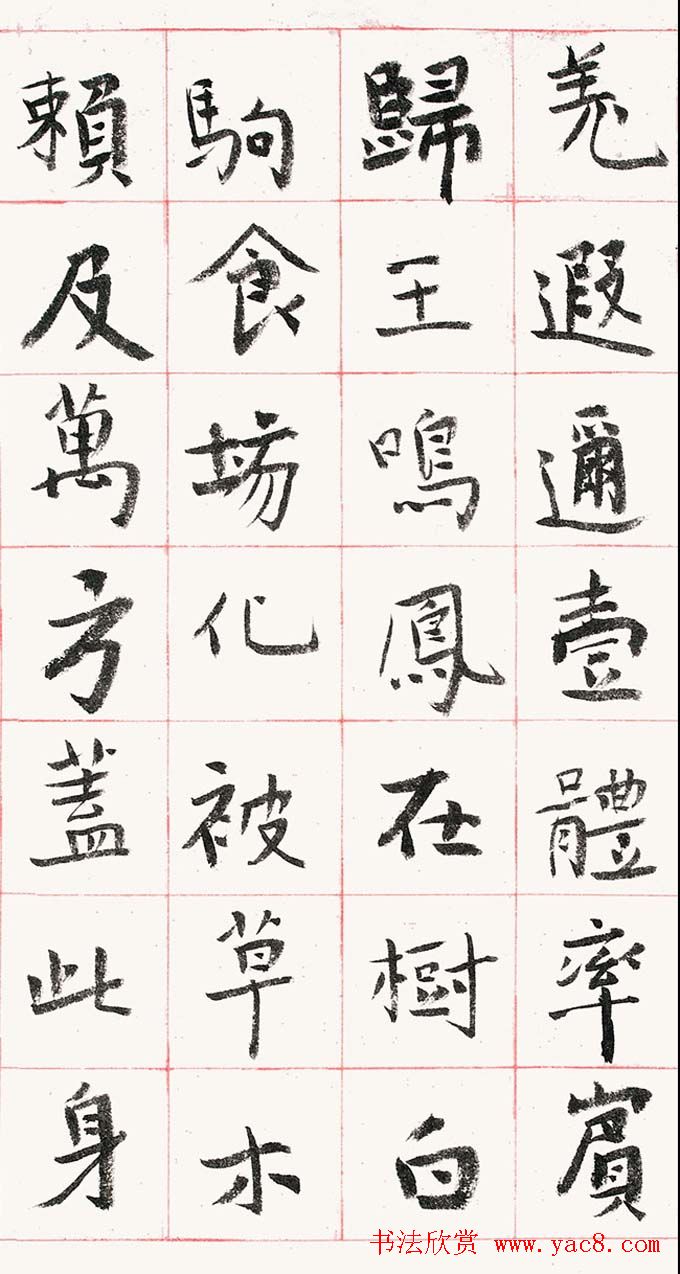 羌遐邇壹體率賓
歸王鳴鳳在樹白
駒食場化被草木
賴及萬方蓋此身
书法欣赏 www.yac8.com